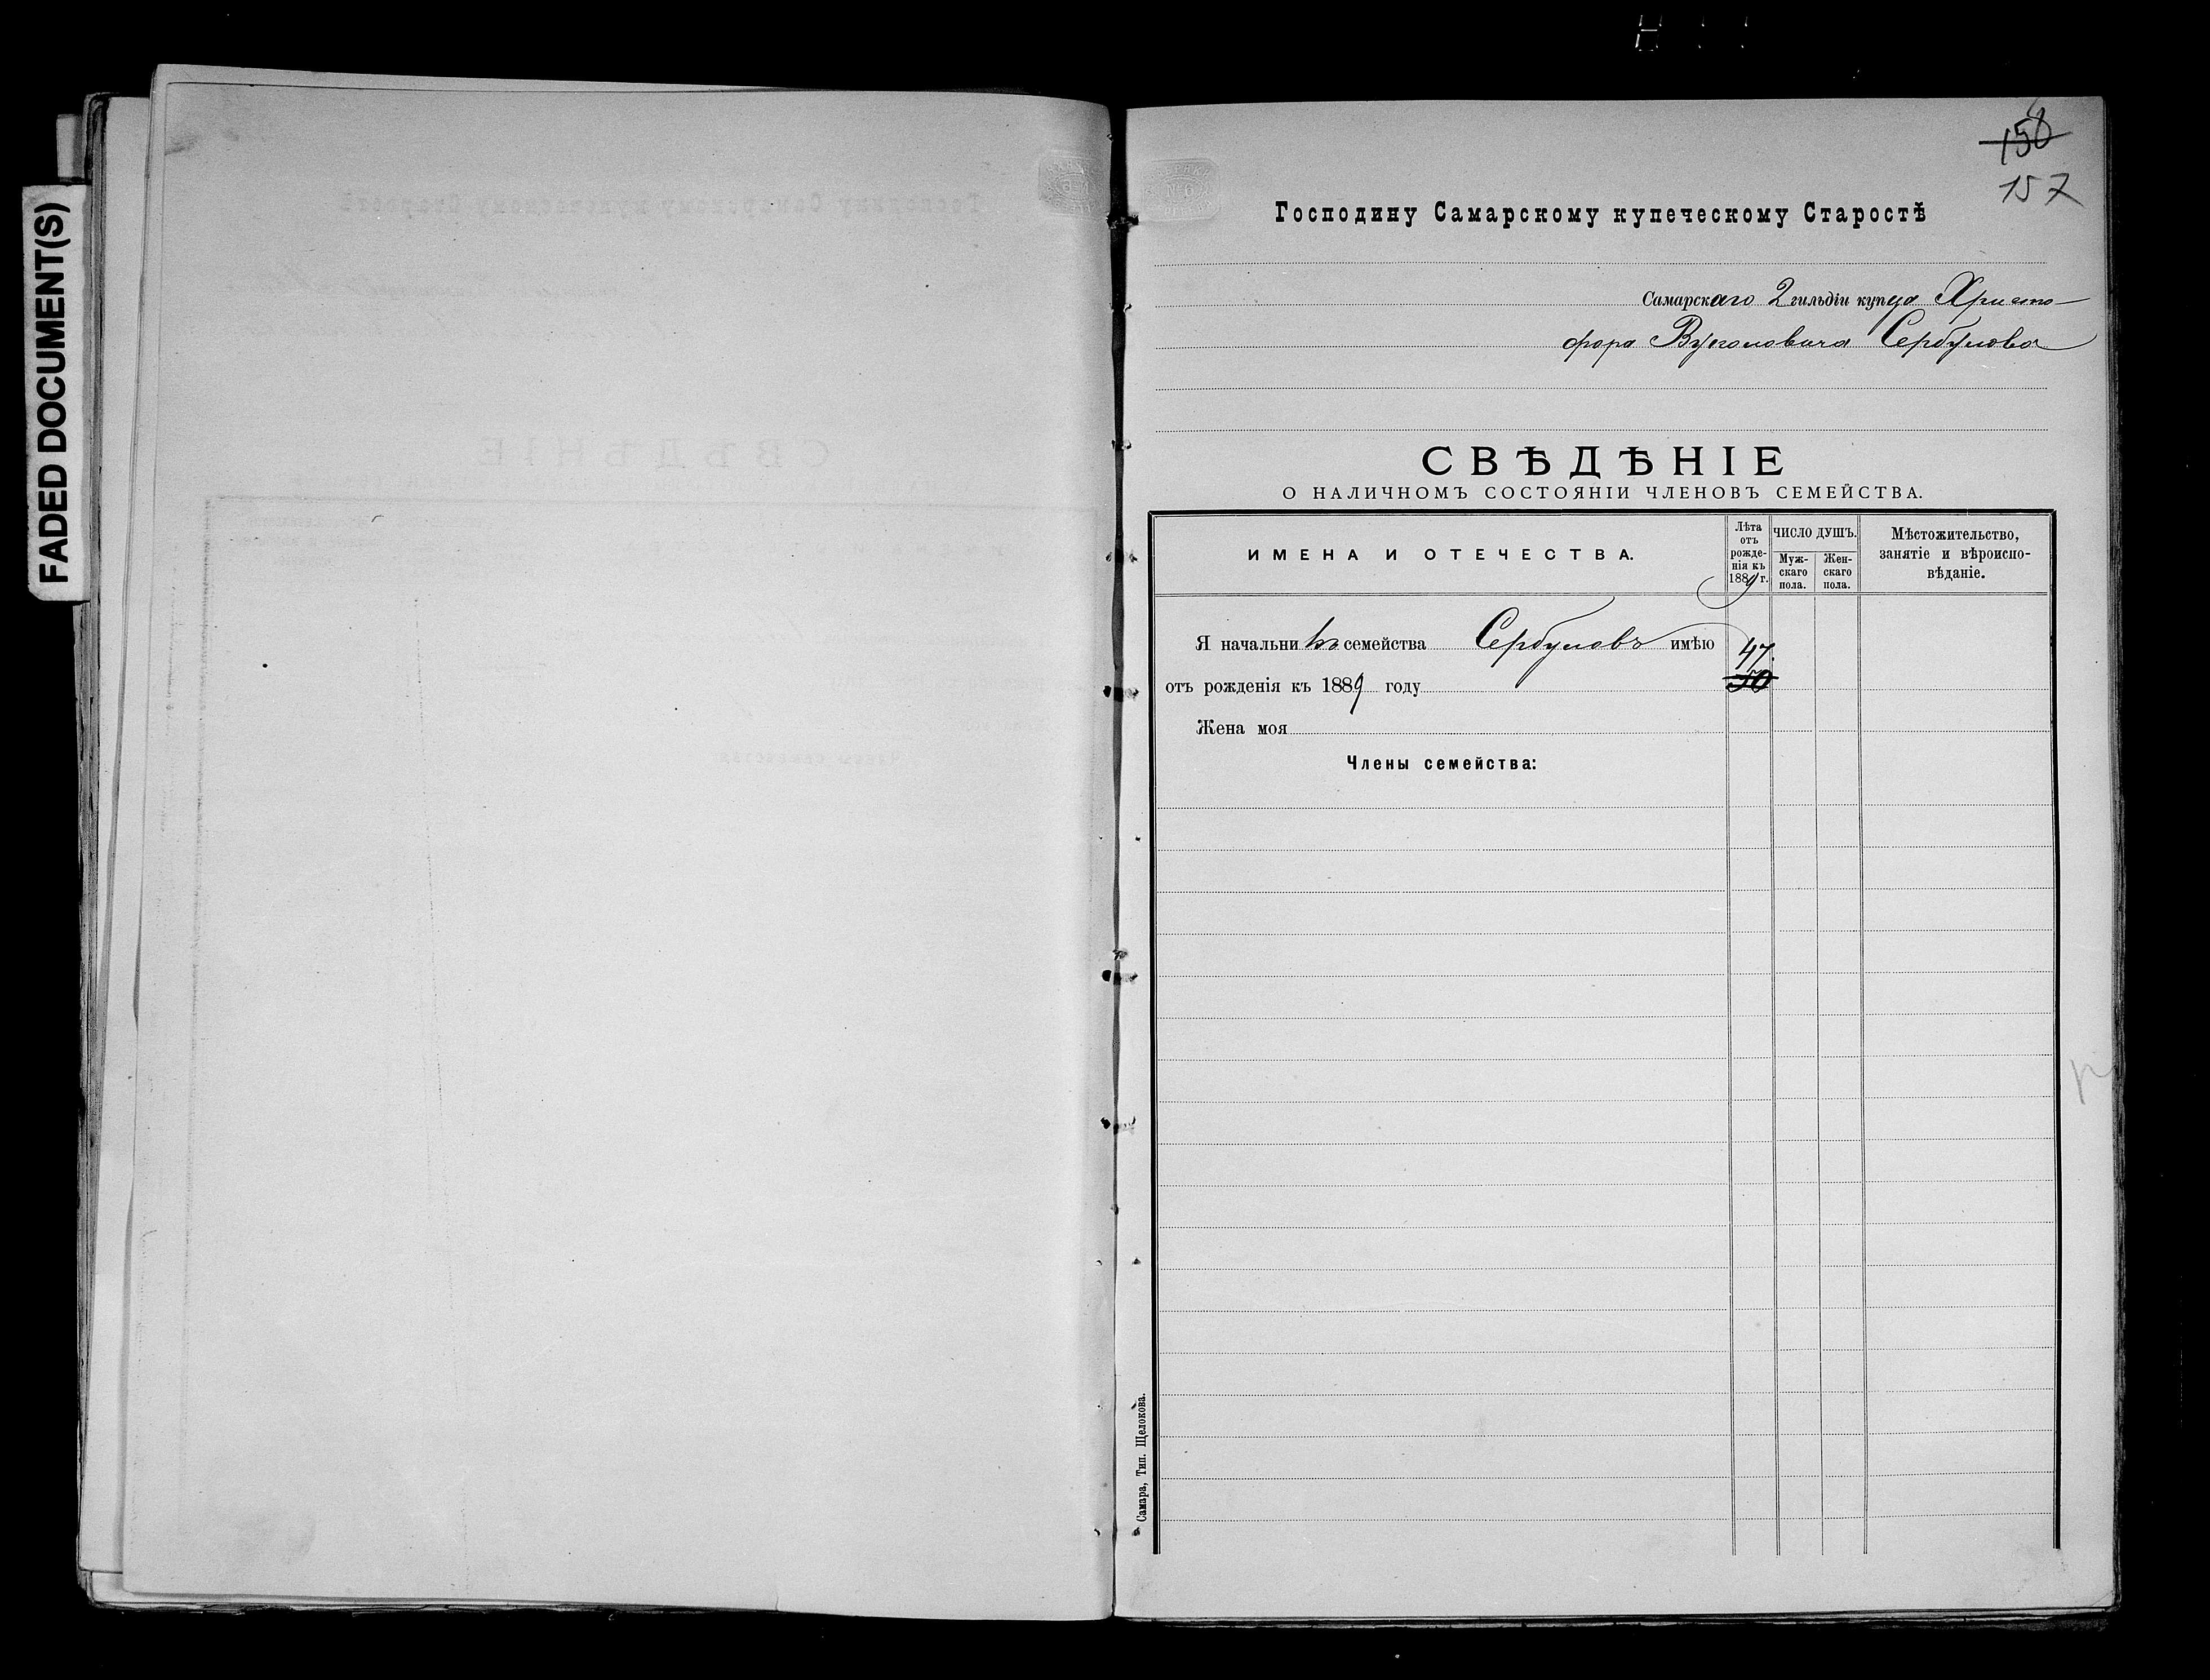 FADED DOCUMENT(S)
158
157
Господину Самарскому купеческому Старостѣ
Самарскаго 2 гильдіи купца Христо-
фора Вуколовича Сербулова
СВѢДѢНІЕ
О НАЛИЧНОМЪ СОСТОЯНІИ ЧЛЕНОВЪ СЕМЕЙСТВА.
ИМЕНА И ОТЕЧЕСТВА.
Лѣта
отъ
рожде-
нія къ
1889 г.
ЧИСЛО ДУШЪ.
Муж-
скаго
пола.
Жен-
скаго
пола.
Мѣстожительство,
занятіе и вѣроиспо-
вѣданіе.
Я начальникъ семейства Сербуловъ имѣю
47.
отъ рожденія къ 1889 году 50
Жена моя
Члены семейства:
Самара, Тип. Щелокова.